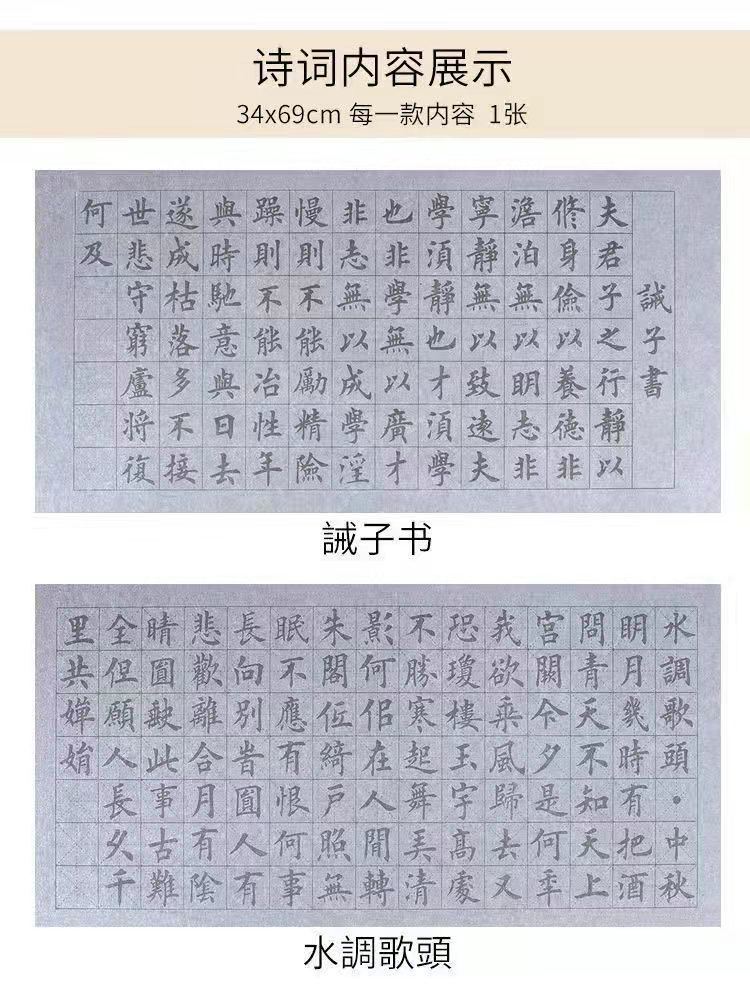 诗词内容展示
34x69cm 每一款内容 1张
誡子書
夫君子之行靜以
修身儉以養德非
澹泊無以明志非
寧靜無以致遠夫
學須靜也才須學
也非學無以廣才
非志無以成學淫
慢則不能勵精險
躁則不能冶性年
與時馳意與日去
遂成枯落多不接
世悲守窮廬將復
何及
誡子书
水調歌頭·中秋
明月幾時有把酒
問青天不知天上
宮闕今夕是何年
我欲乘風歸去又
恐瓊樓玉宇高處
不勝寒起舞弄清
影何佀在人間轉
朱閣低綺戶照無
眠不應有恨何事
長向別旹圓人有
悲歡離合月有陰
晴圓缺此事古難
全但願人長久千
里共嬋娟
水調歌頭